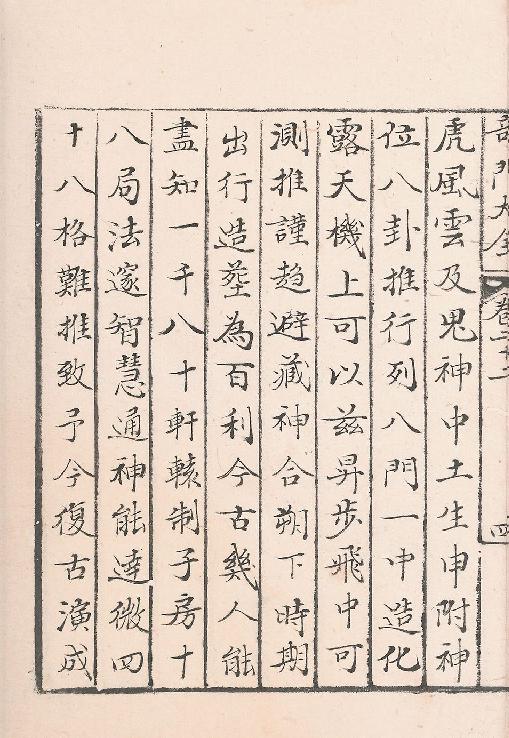 奇門大全 卷二十二 四
虎風雲及鬼神中土生申附神
位八卦推行列八門一中造化
露天機上可以兹昇步飛中可
測推謹趨避藏神合朔下時期
出行造塟為百利今古幾人能
盡知一千八十軒轅制子房十
八局法邃智慧通神能達微四
十八格難推致予今復古演成